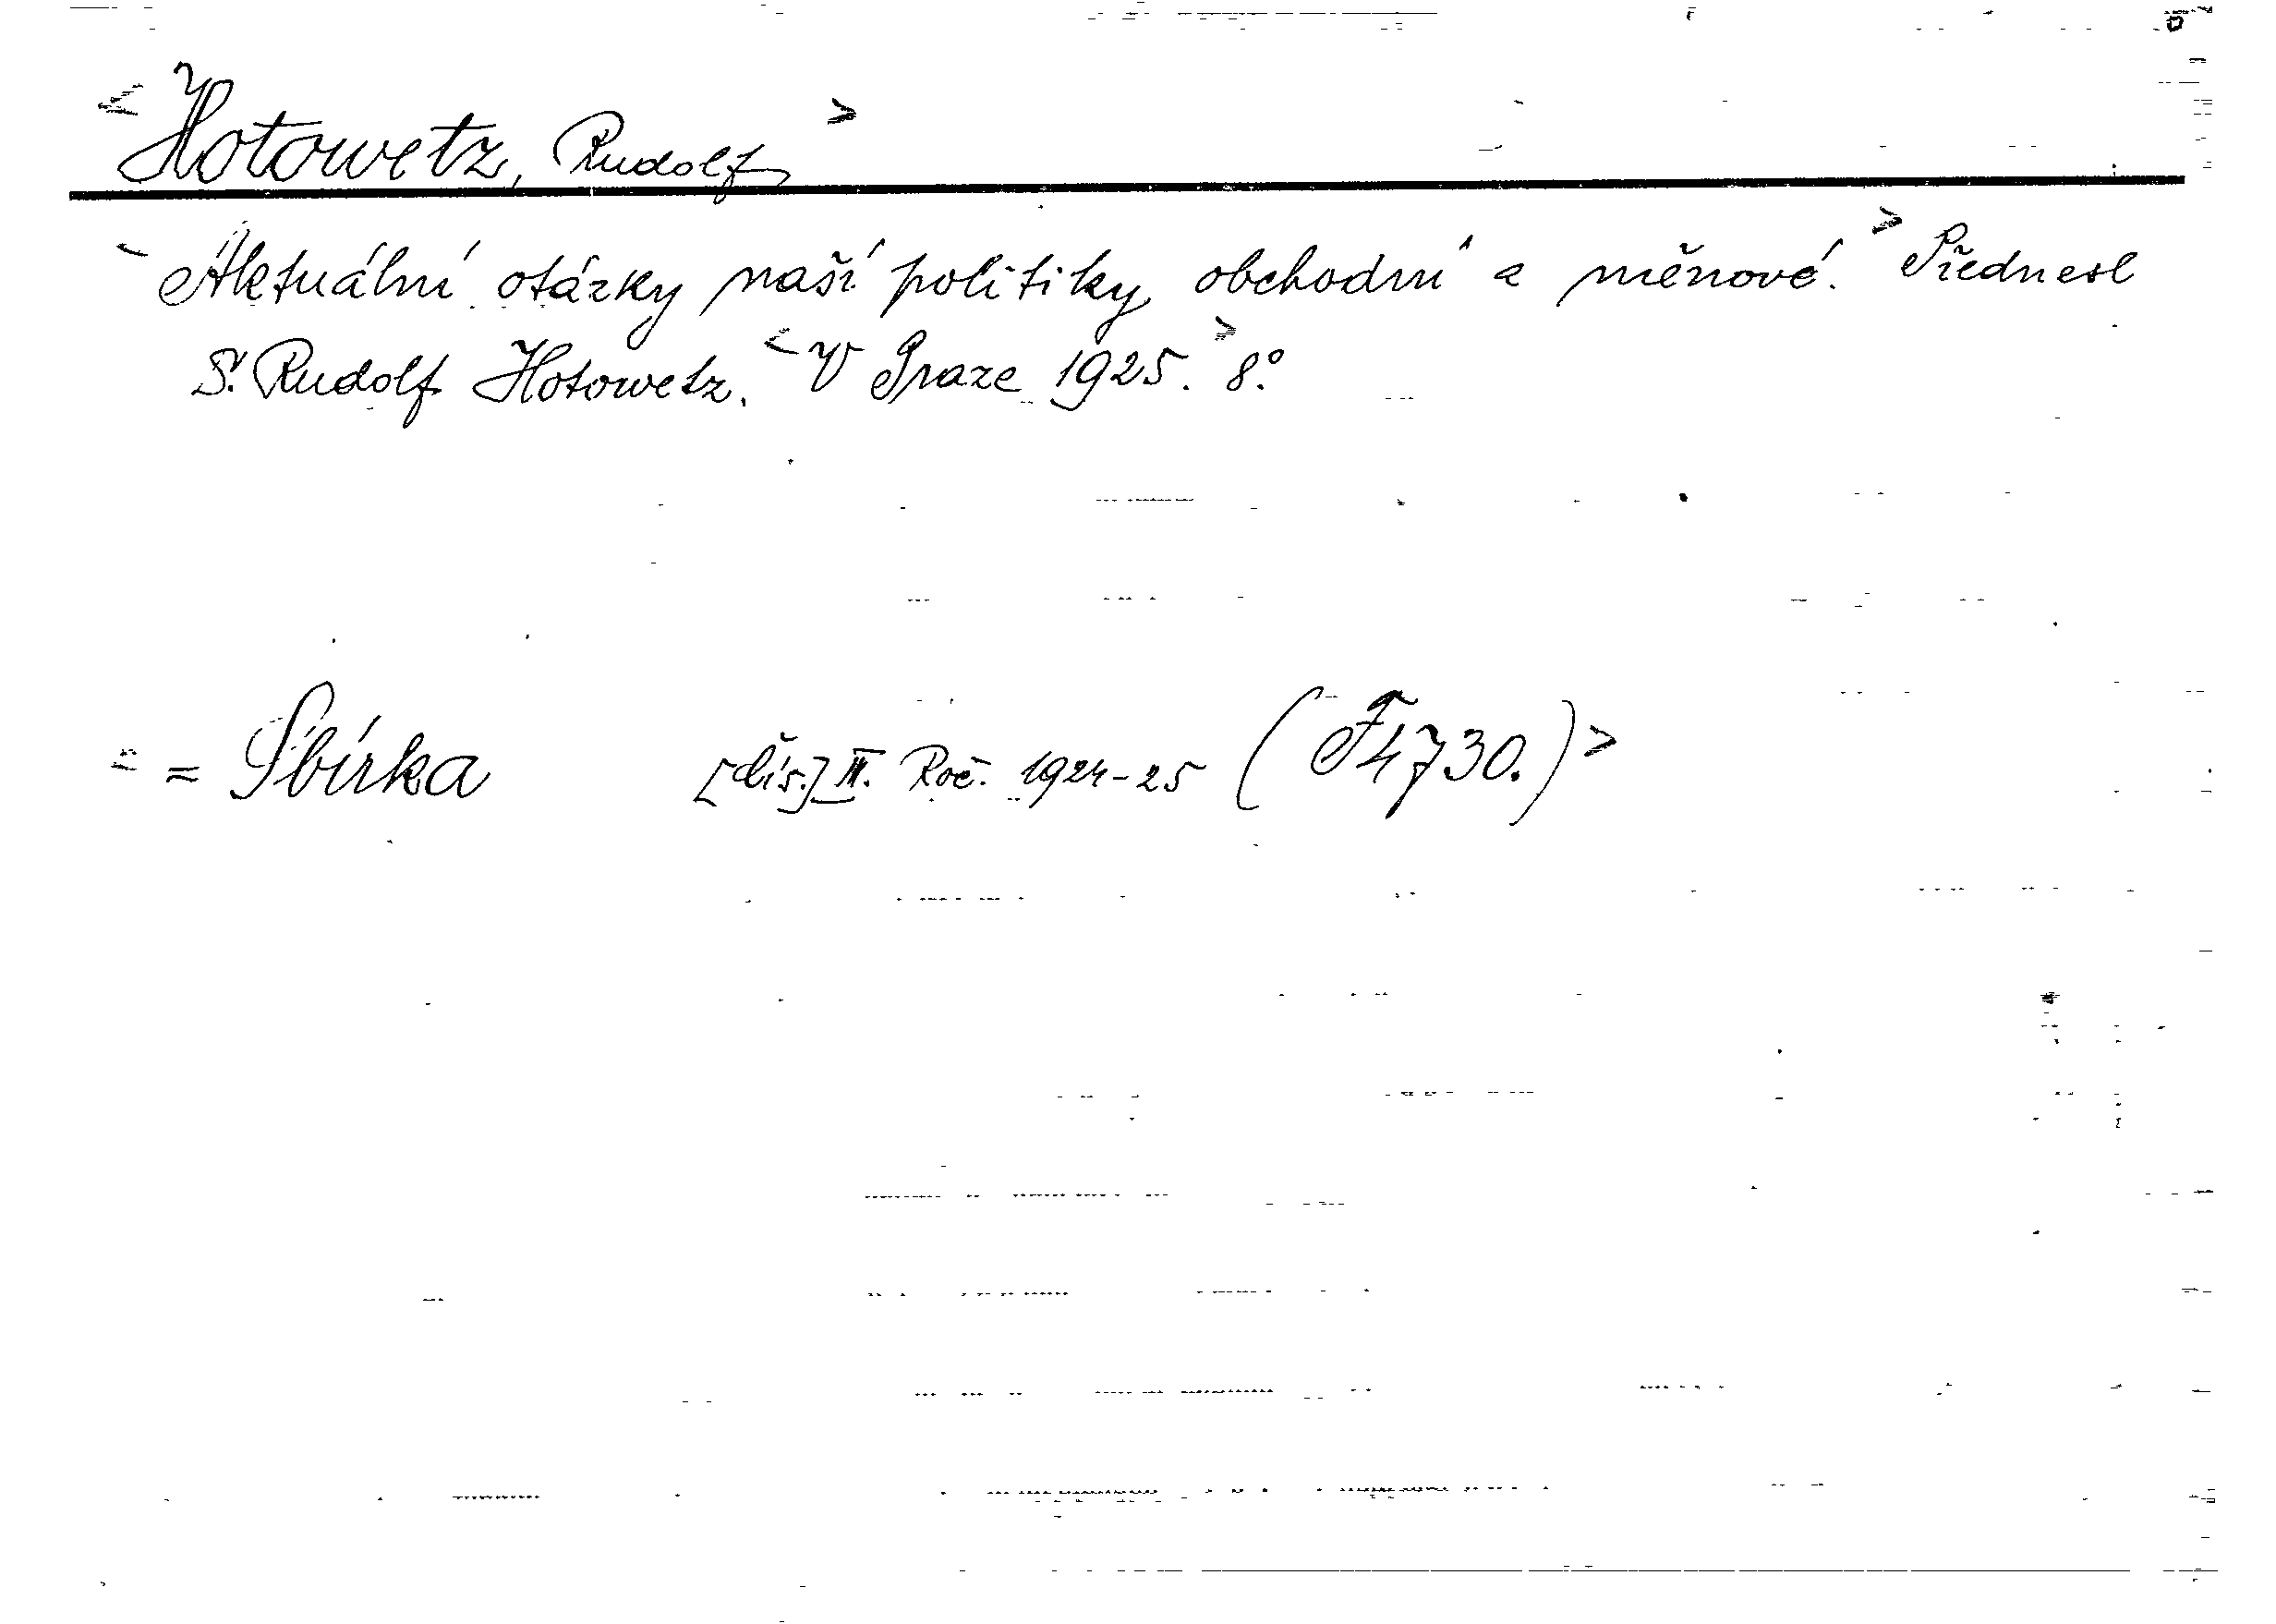 <Hotowetz, Rudolf>
<Aktuální otázky naší politiky obchodní a měnové.> Přednesl
S. Rudolf Hotowetz. <V Praze 1925.> 8°.
<= Sbírka [čís.] III. Roč. 1924-25 (F4730.)>